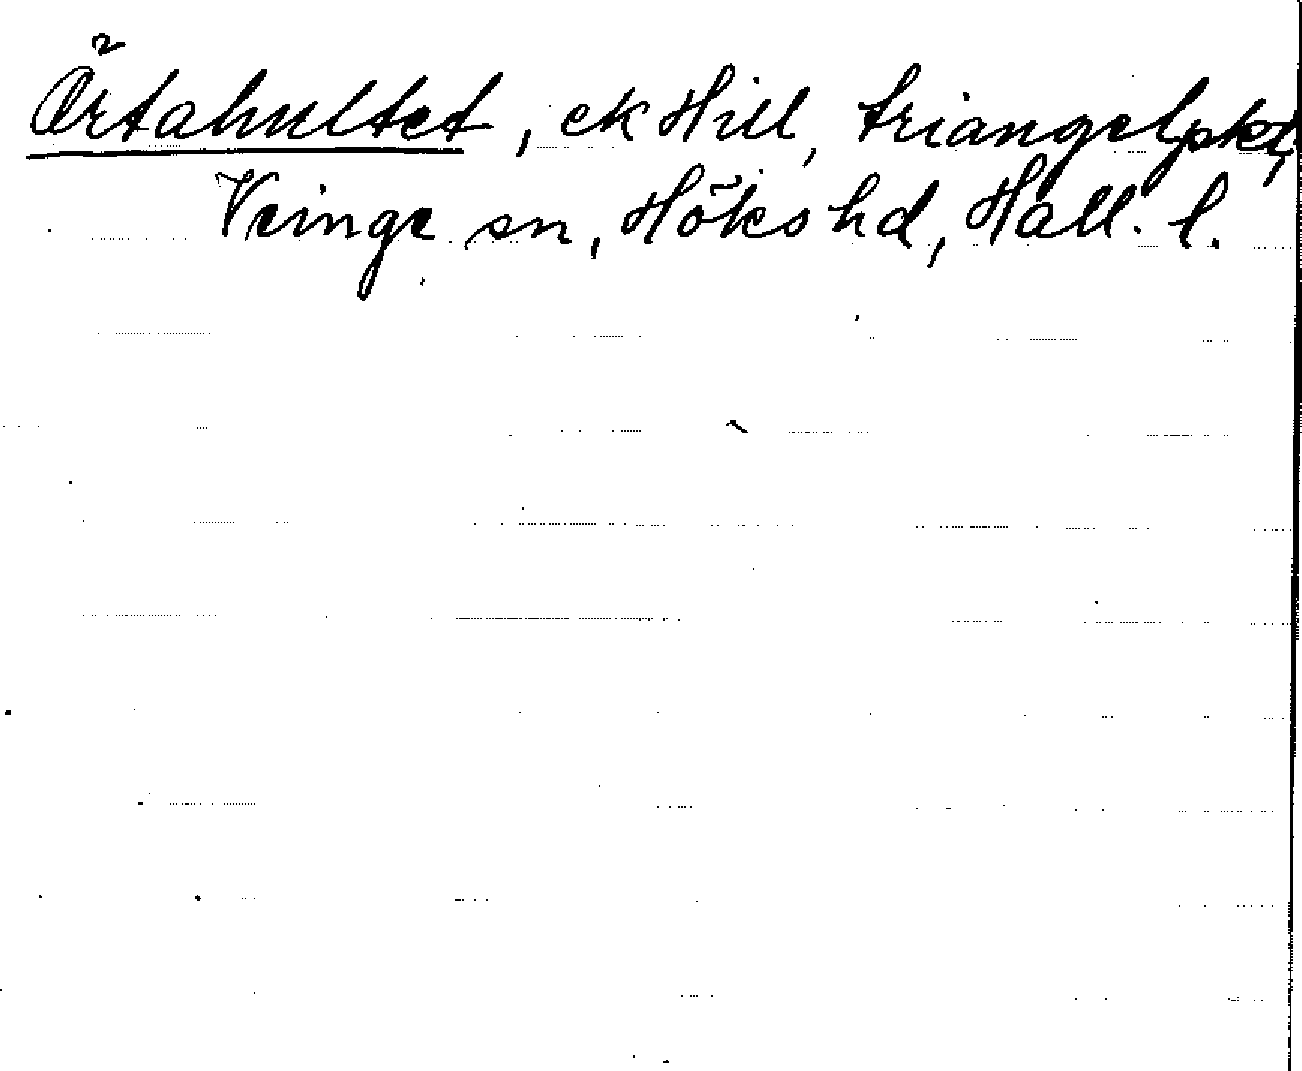 Örtahultet, ek Hill, triangelpkt,
Veinge sn, Höks hd, Hall. l.